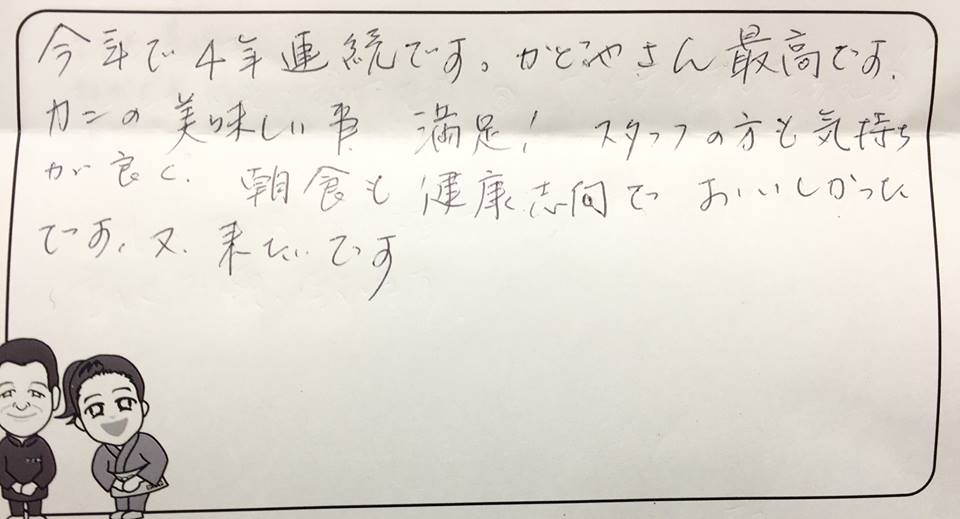 今年で4年連続です。かどやさん最高です。
カニの美味しい事 満足! スタッフの方も気持ち
が良く、朝食も健康志向で おいしかった
です、又、来たいです